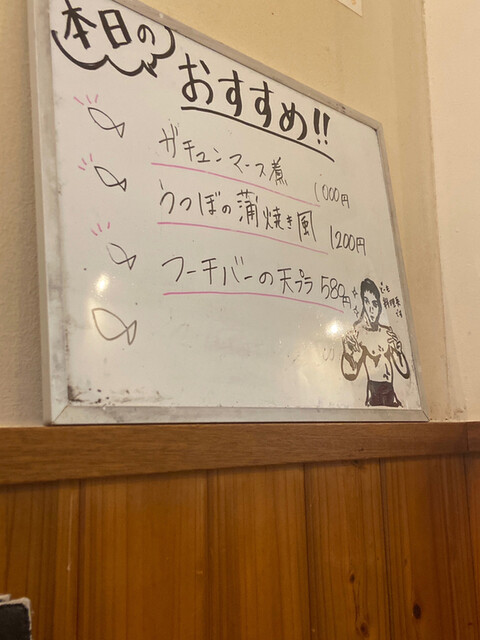 本日の
おすすめ!!
ガチュンマース煮 1000円
うつぼの蒲焼き風 1200円
フーチバーの天プラ 580円